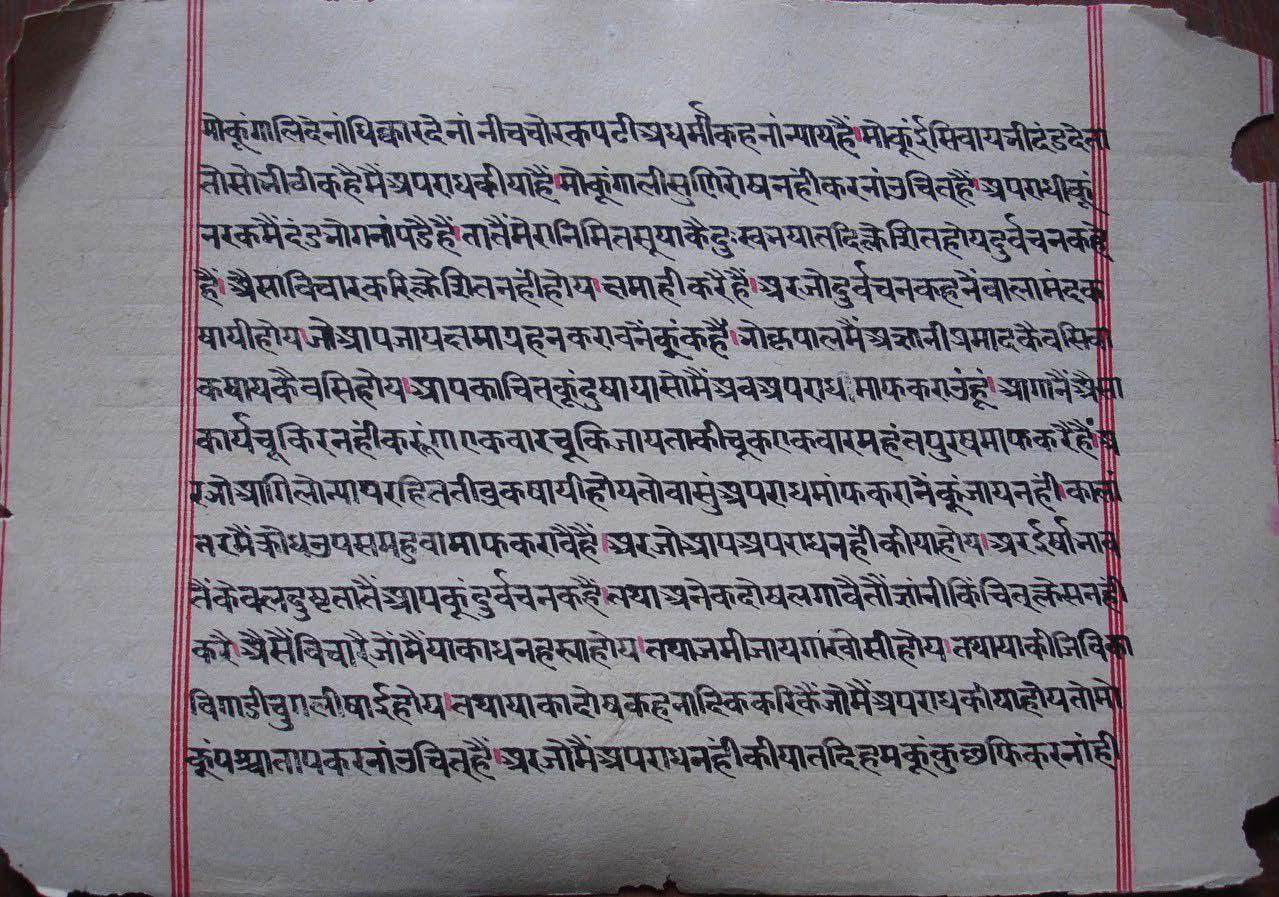 मोकूंगालिदेनांधिक्कारदेनांनीचचोरकपटीअधर्मीकहनांन्यायहैं।मोकूंईसिवायनीदंडदेना
तोसोनीठीकहैमैंअपराधकीयाहैं।मोकूंगालीसुणिरोषनहीकरनांउचितहैं।अपराधीकूं
नरकमैंदंडनोगनांपडैहैं।तातैंमेरानिमितसूयाकैदुःखनयातदिक्लेशितहोयदुर्वचनकहे
हैं।अैसाविचारकरिक्लेशितनहींहोय।क्षमाहीकरैहैं।अरजोदुर्वचनकहनैंवालामंदक
षायीहोय।जोआपजायक्षमाग्रहनकरावनैंकूंकहैं।नोकृपालमैंअज्ञानीप्रमादकैवसिवा
कषायकैवसिहोय।आपकाचितकूंदुषायासोमैंअवअपराधमाफकराउंहूं।आगानैंअैसा
कार्यचूकिरनहींकरूंगाएकवारचूकिजायताकीचूकएकवारमहंतपुरषमाफकरैहैं।अ
रजोआगिलोन्यायरहिततीव्रकषायीहोयतोवासुंअपराधमांफकरानेंकूंजायनही।कालां
तरमैंक्रोधउपसमहुवामाफकरावैहैं।अरजोआपअपराधनहींकीयाहोय।अरईर्षानाव
तैंकेवलदुष्टतातैंआपकूंदुर्वचनकहैं।तथाअनेकदोषलगावैतौंज्ञानीकिंचित्क्लेसनही
करै।अैसैंविचारैजोंमैंयाकाधनहस्याहोय।तथाजमीजायगांखोसीहोय।तथायाकीजिविका
विगाडीचुगलीषाईहोय।तथायाकादोषकहनादिककरिकैंजोमैंअपराधकीयाहोयतोमो
कूंपश्चातापकरनांउचित्हैं।अरजोमैंअपराधनहींकीयातदिहमकूंकुछफिकरनांही